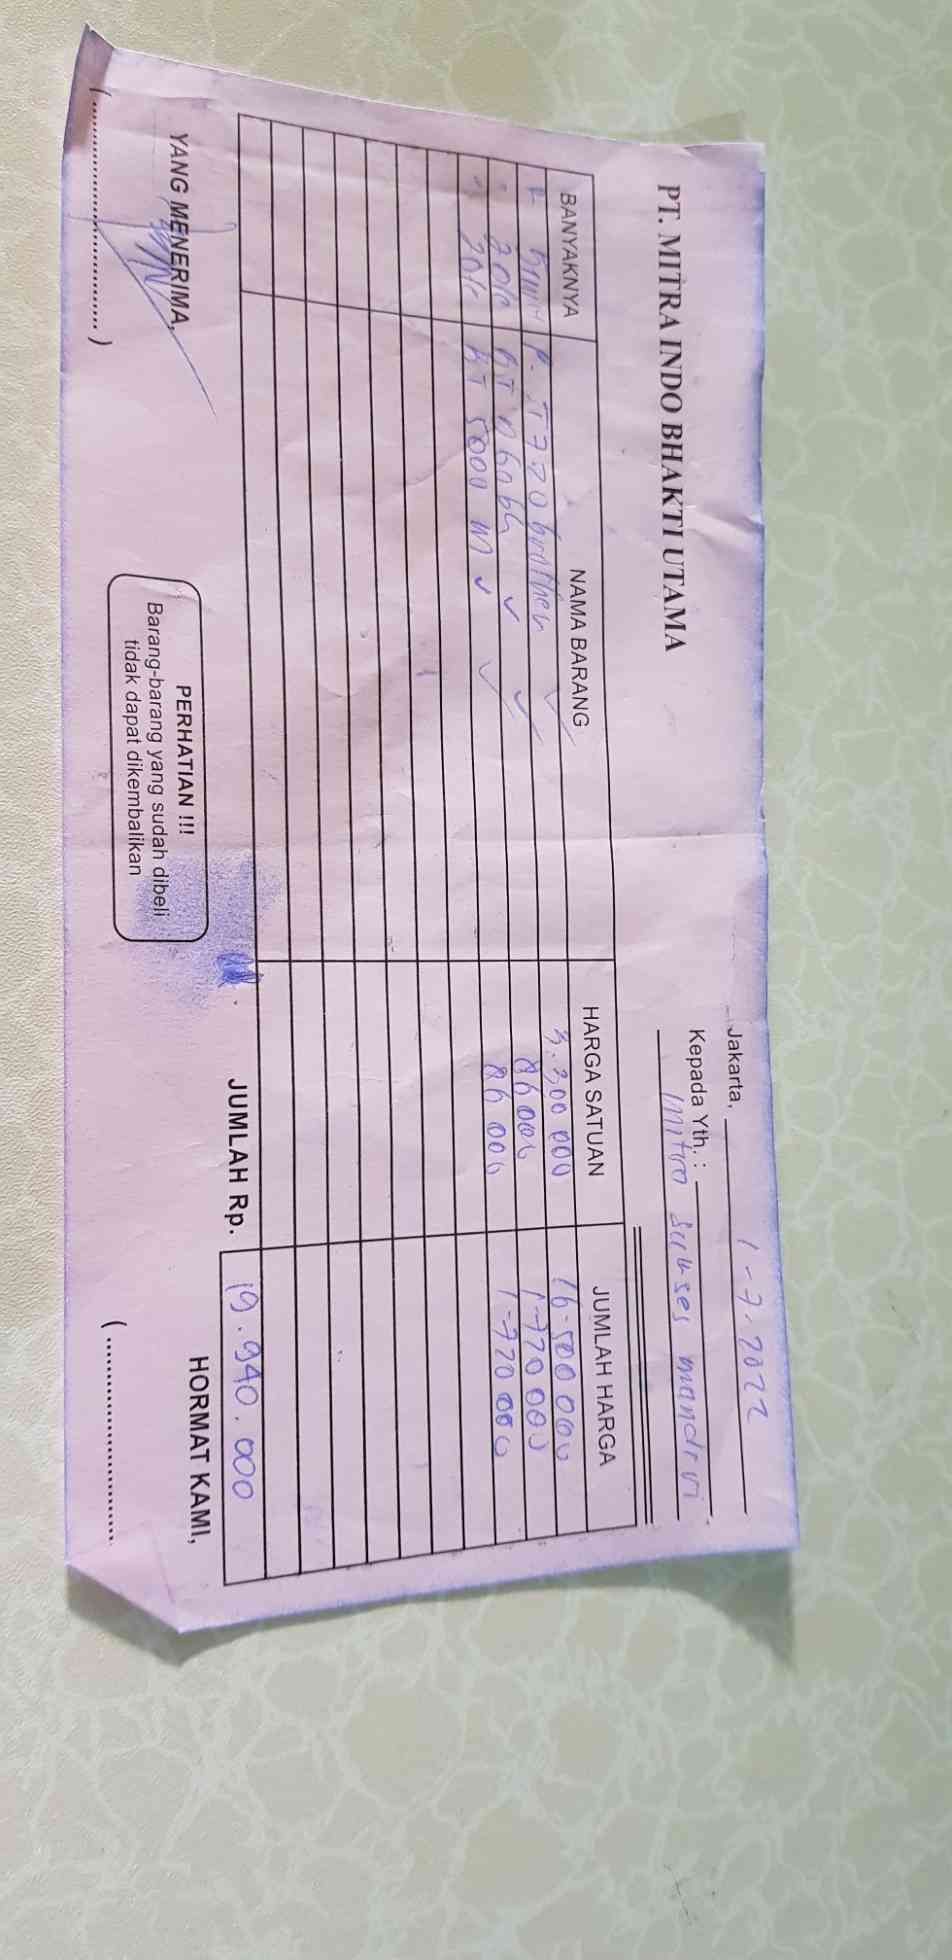 PT. MITRA INDO BHAKTI UTAMA
Jakarta, 1-7-2022
Kepada Yth. :
mitra sukses mandiri
BANYAKNYA NAMA BARANG HARGA SATUAN JUMLAH HARGA
brother 3.300 000 16.500 000
86 000 1-720 000
5000 86 000 1-720 000
JUMLAH Rp. 19.940.000
YANG MENERIMA,
PERHATIAN !!!
Barang-barang yang sudah dibeli
tidak dapat dikembalikan
HORMAT KAMI,
(........................)
(........................)